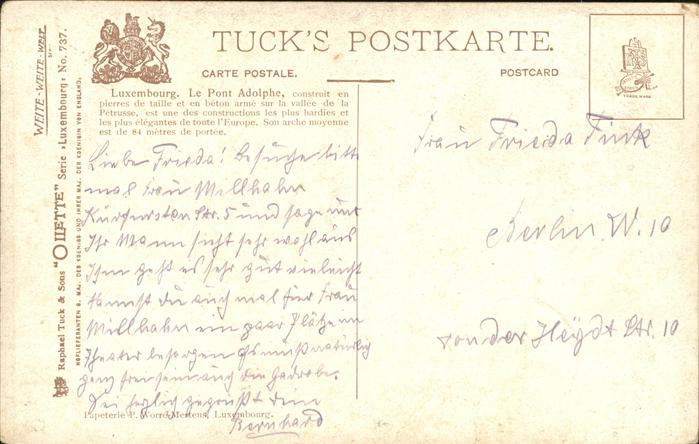 TUCK'S POSTKARTE.
CARTE POSTALE.
POSTCARD
TRADE MARK
WEITE-WEITE-WELT
Raphael Tuck & Sons "OILETTE" Serie „Luxembourg“ No. 737.
HOFLIEFERANTEN S. MAJ. DES KOENIGS UND IHRER MAJ. DER KOENIGIN VON ENGLAND.
Luxembourg. Le Pont Adolphe, construit en
pierres de taille et en béton armé sur la vallée de la
Pétrusse, est une des constructions les plus hardies et
les plus élégantes de toute l'Europe. Son arche moyenne
est de 84 mètres de portée.
Liebe Frieda! Besuche bitte
mal Frau Millhahn
Kurfürsten Str. 5 und sage
Ihr Mann sieht sehr wohl aus
geht es sehr gut vieleicht
kannst du auch mal für Frau
Millhahn ein paar Plätze im
Theater besorgen es muß natürlich
ganz frei sein auch die
Sei herzlich gegrüßt dein
Bernhard
Papeterie P. Worré-Mertens, Luxembourg.
Frau Frieda
Berlin. W. 10
von der Heydt Str. 10